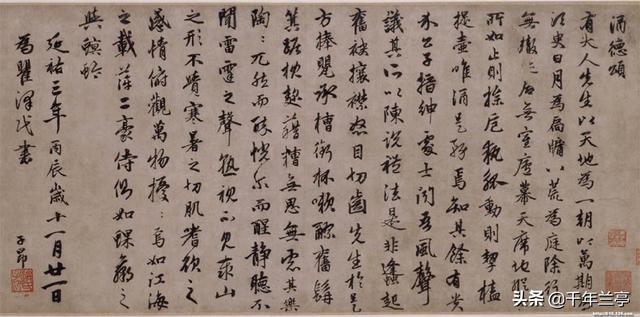 酒德頌
有大人先生以天地為一朝以萬期為
須臾日月為扃牖八荒為庭除行
無轍跡居無室廬幕天席地縱意
所如止則操卮執觚動則挈榼
提壺唯酒是務焉知其餘有貴
介公子搢紳處士聞吾風聲
議其所以陳說禮法是非蠭起
奮袂攘襟怒目切齒先生於是
方捧甖承槽銜杯漱醪奮髯
箕踞枕麴藉糟無思無慮其樂
陶〻兀然而醉恍尔而醒靜聽不
聞雷霆之聲熟視不見泰山
之形不覺寒暑之切肌嗜欲之
感情俯觀萬物擾〻焉如江海
之載萍二豪侍側如蜾蠃之
與螟蛉
延祐三年丙辰歲十一月廿一日
為瞿澤民書
子昂
头条 @千年兰亭